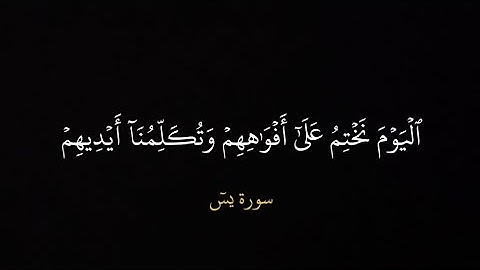 ٱلۡيَوۡمَ نَخۡتِمُ عَلَىٰٓ أَفۡوَٰهِهِمۡ وَتُكَلِّمُنَآ أَيۡدِيهِمۡ
سورة يسٓ